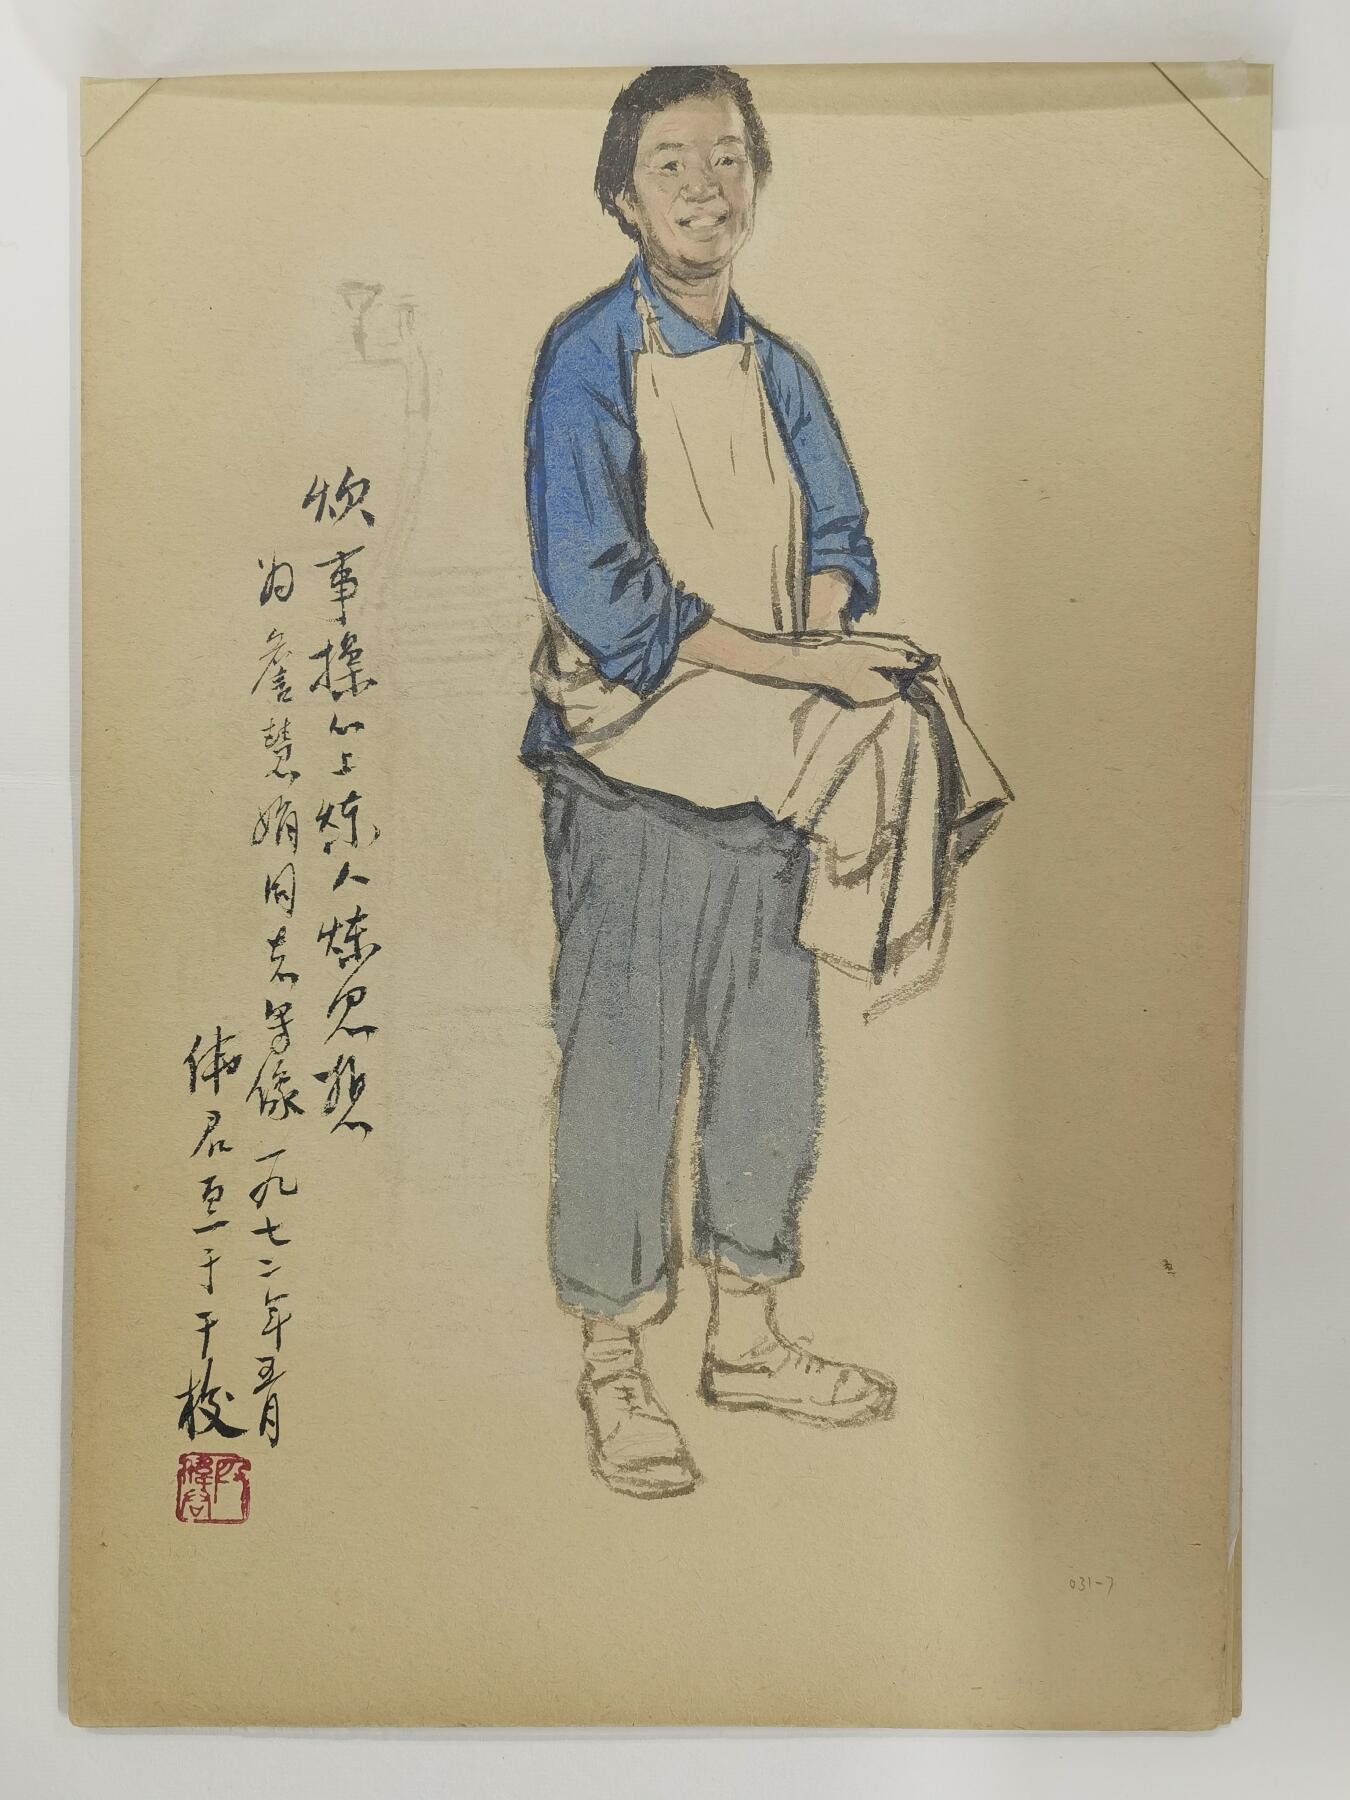 炊事操心上炼人炼思想
为詹慧娟同志写像一九七二年五月
伟君画于干校
031-7